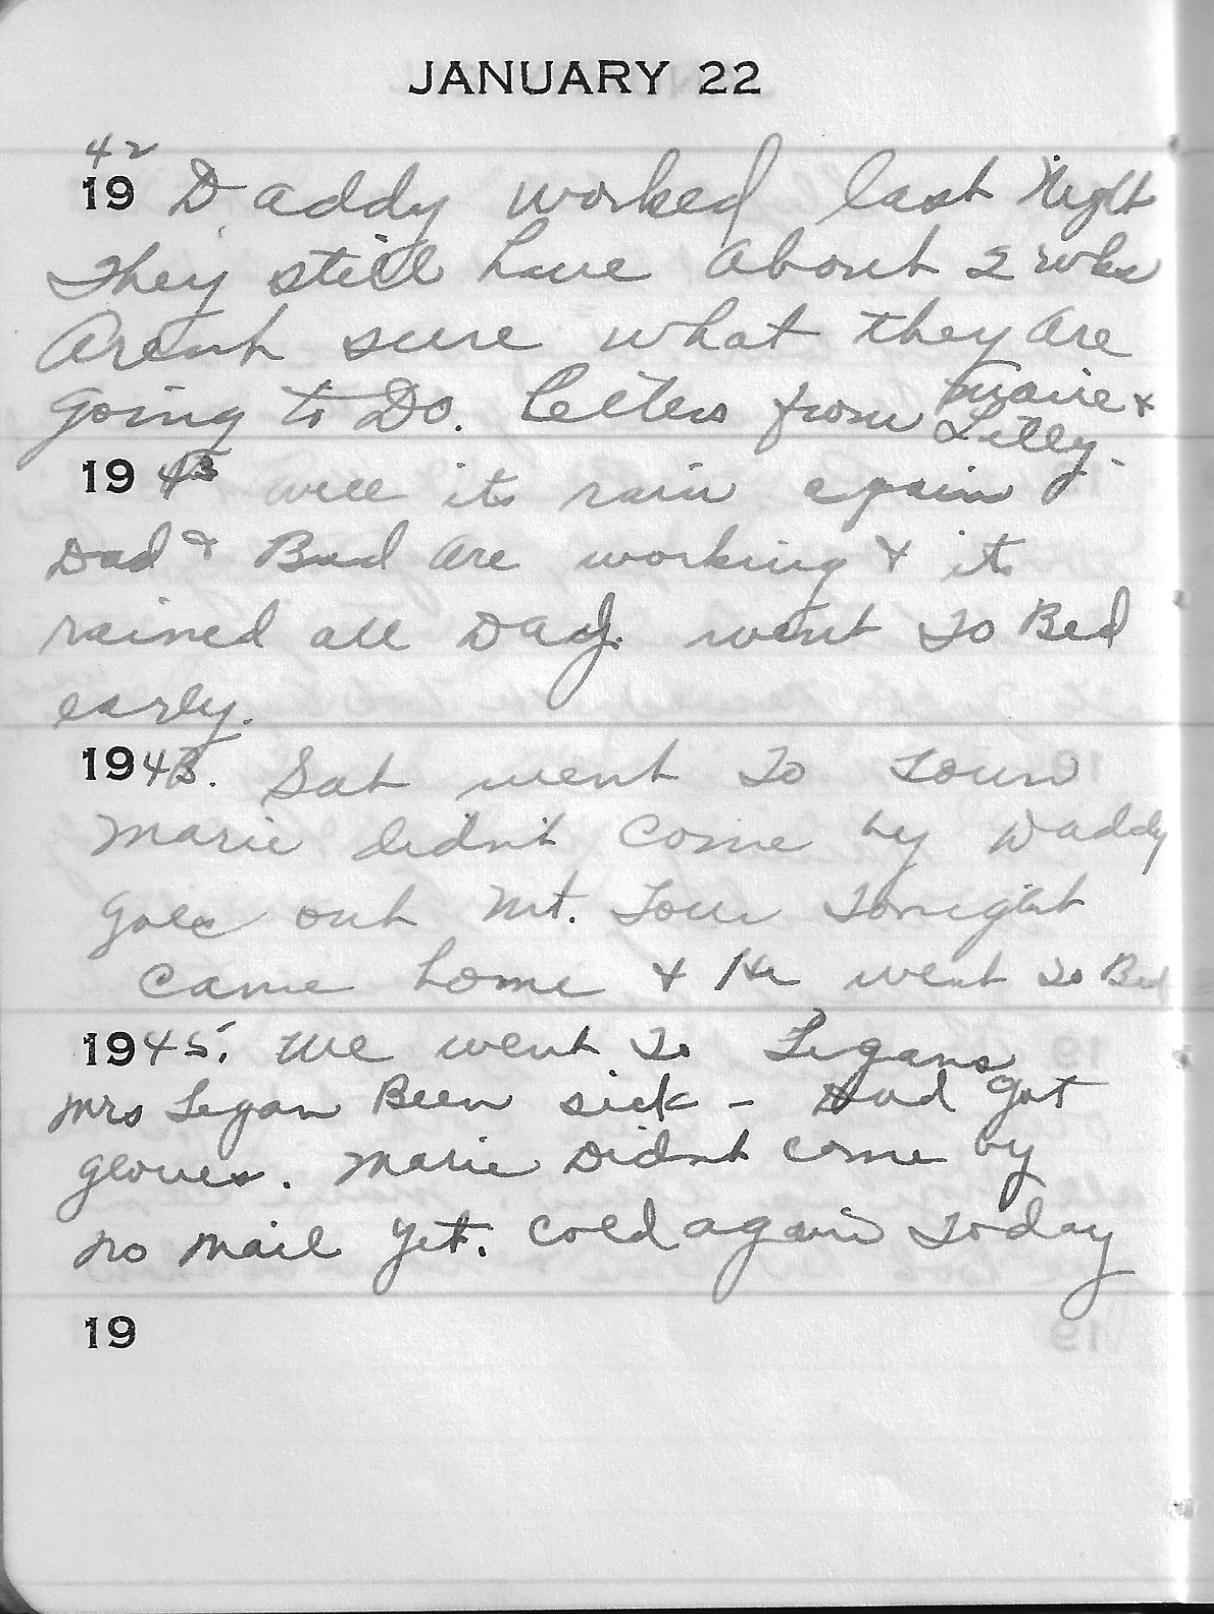 JANUARY 22
42
19 Daddy worked last Night
They still have About 2 wks
Arent sure what they Are
Going to Do. Letters from Marie &
Lilly.
1943 well its rain again
Dad & Bud Are working & its
rained all Day. went To Bed
early.
1943. Sat went To Town
Marie didn't Come by Daddy
Goes out Mt. Tour Tonight
Came home & He went To Bed
1945. We went To Legans
Mrs Legan Been sick - Dad Got
gloves. Marie Didnt come by
No Mail Yet. Cold again Today
19